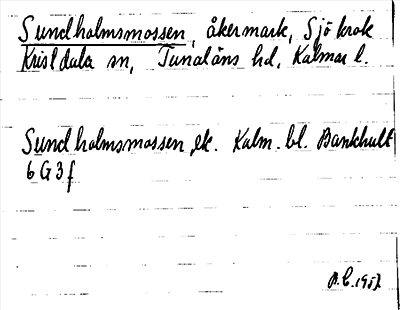 Sundholmsmossen, åkermark, Sjökrok
Kristdala sn, Tunaläns hd, Kalmar l.
Sundholmsmossen, ek. Kalm. bl. Bankhult
6 G 3 f